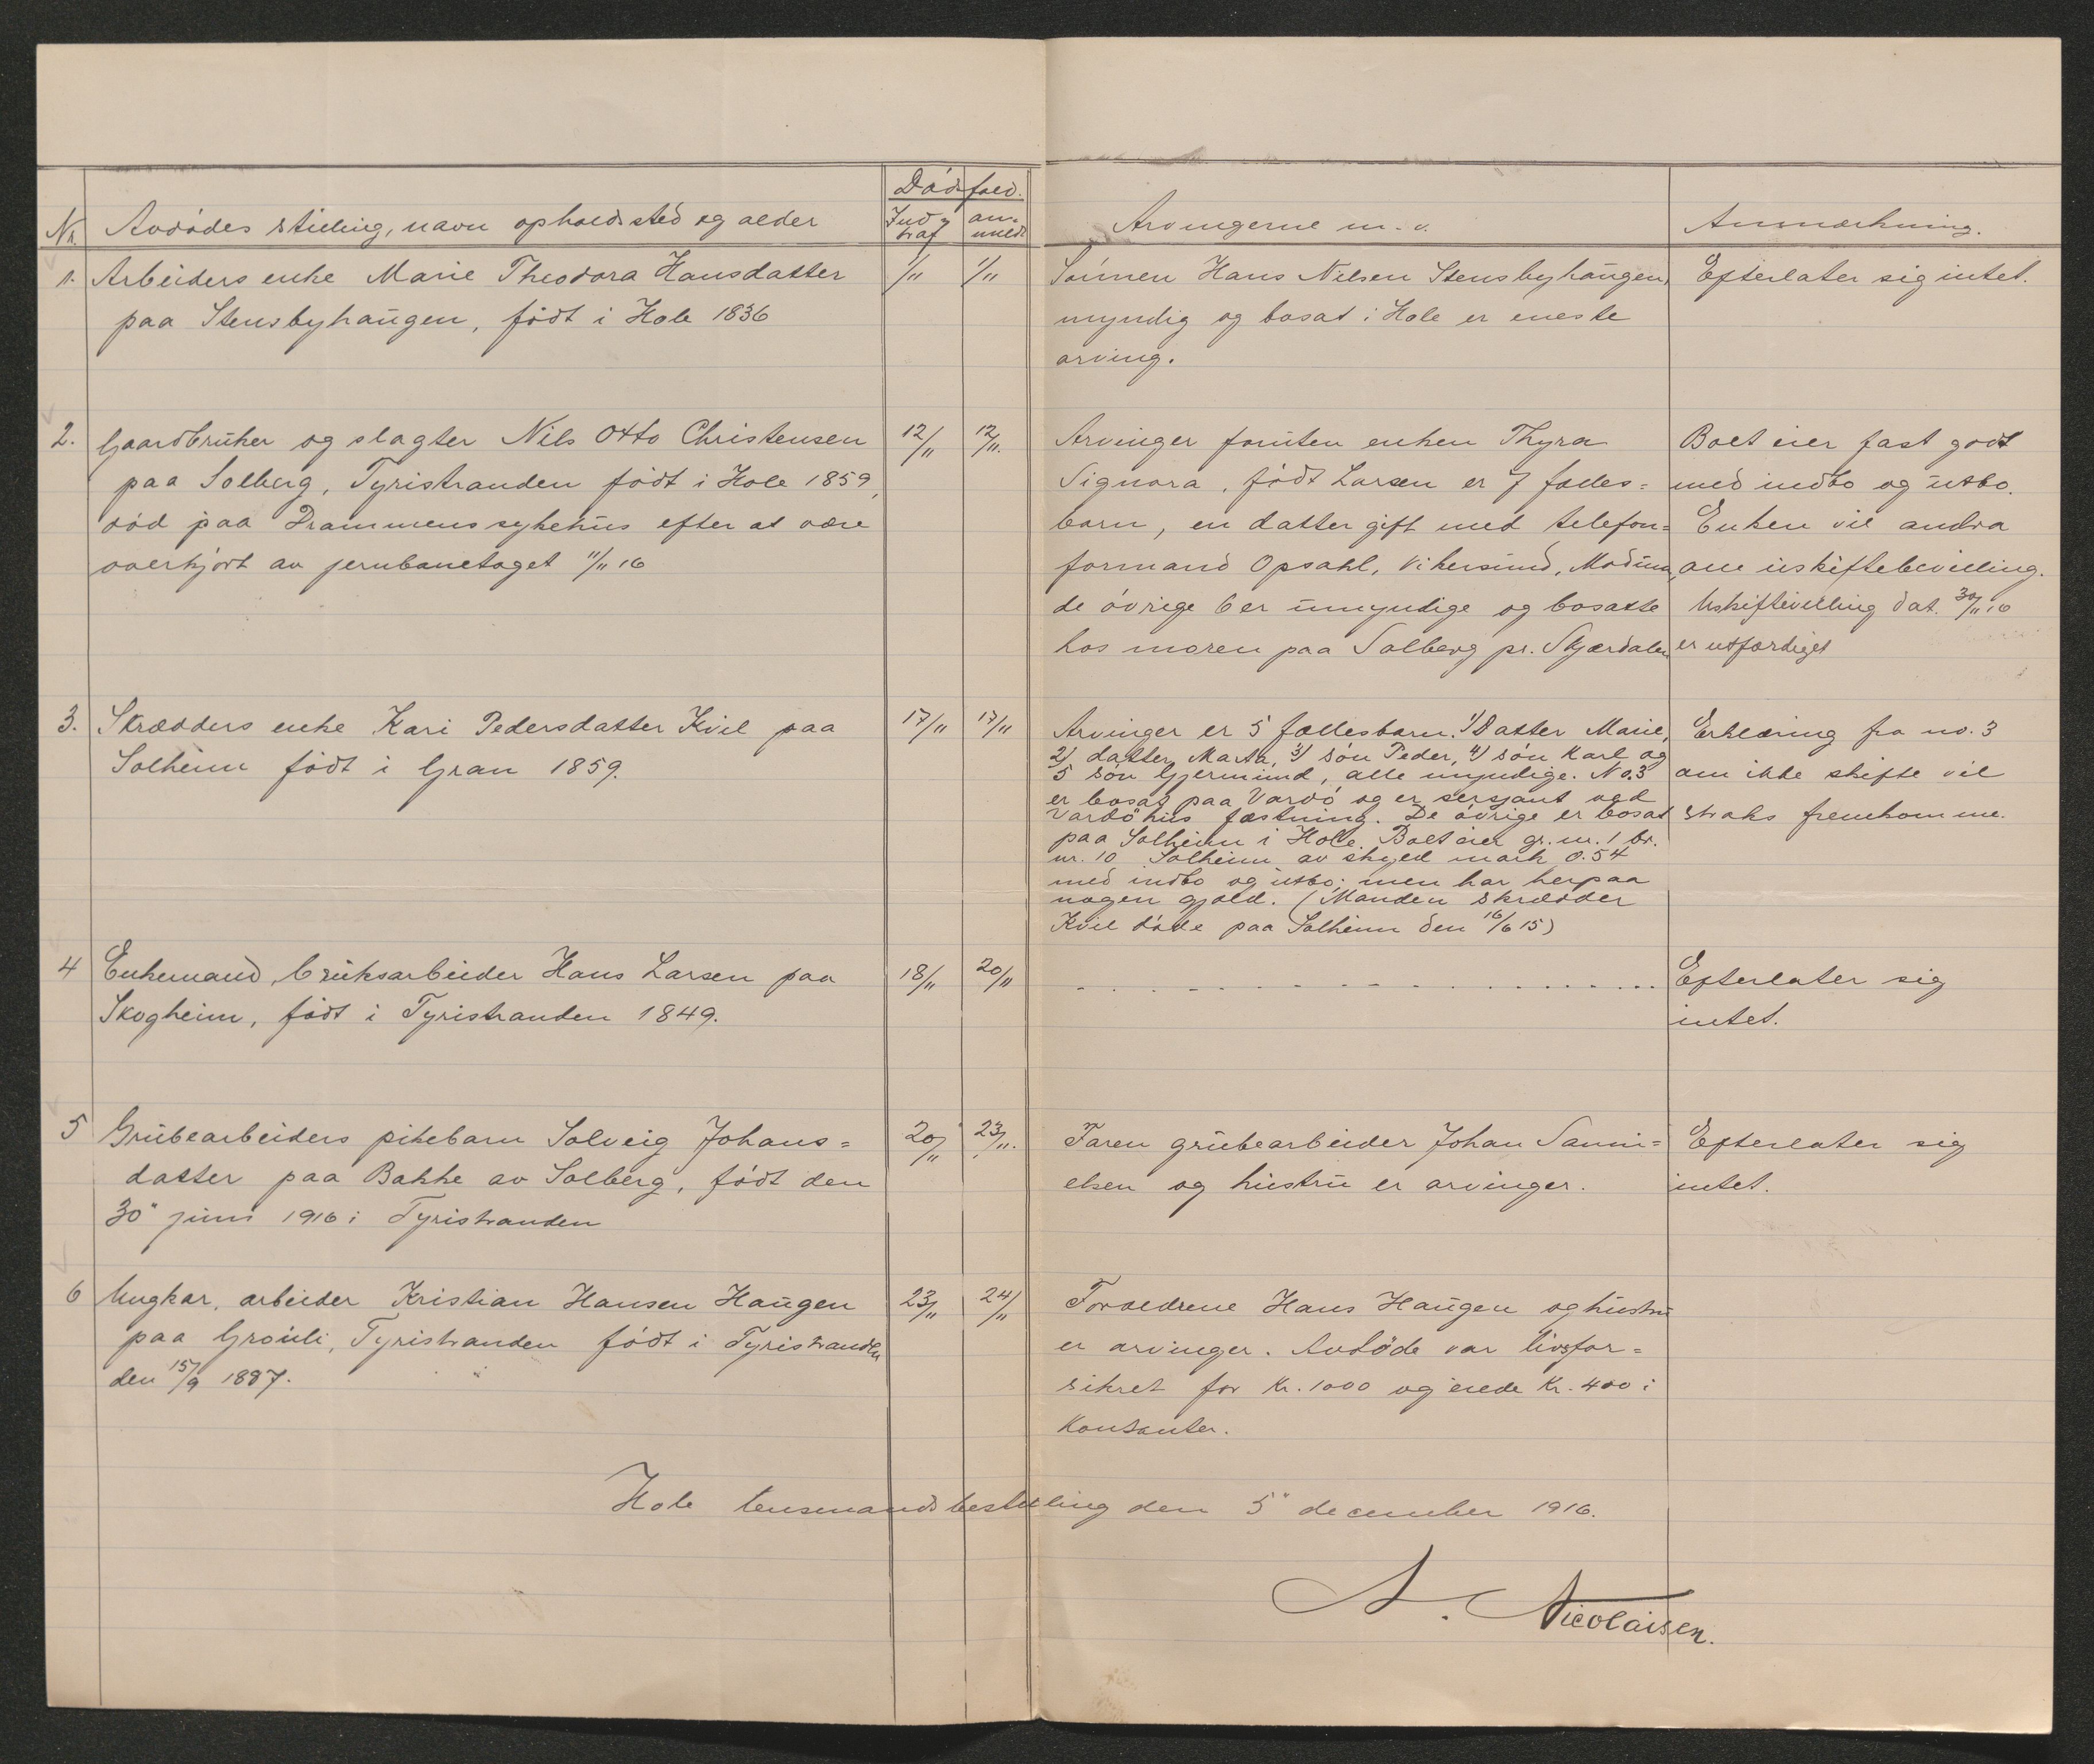 Dødsfald.
Nr. Avdødes stilling, navn opholdssted og alder Ind-traf an-meldt Arvingerne m. v. Anmærkning.
1. Arbeiders enke Marie Theodora Hansdatter 1/11 1/11
paa Stensbyhaugen, født i Hole 1836
Sønnen Hans Nilsen Stensbyhaugen,
myndig og bosat i Hole er eneste
arving.
Efterlater sig intet.
2. Gaardbruker og slagter Nils Otto Christensen 12/11 12/11.
paa Solberg, Tyristranden født i Hole 1859,
død paa Drammens sykehus efter at være
overkjørt av jernbanetoget 11/11 16
Arvinger foruten enken Thyra
Signora, født Larsen er 7 fælles=
barn, en datter gift med telefon=
formand Opsahl, Vikersund, Modum,
de øvrige 6 er umyndige og bosatte
hos moren paa Solberg pr. Skjærdalen
Boet eier fast godt
med indbo og utbo.
Enken vil andra
om uskiftebevilling.
Uskiftevilling dat. 30/11 16
er utfærdiget
3. Skrædders enke Kari Pedersdatter Kvil paa 17/11 17/11
Solheim født i Gran 1859.
Arvinger er 5 fællesbarn. 1) Datter Marie,
2) datter Marta, 3) søn Peder, 4) søn Karl og
5 søn Gjermund, alle myndige. No. 3
er bosat paa Vardø og er sersjant ved
Vardøhus fæstning. De øvrige er bosat
paa Solheim i Hole. Boet eier gr. nr. 1 br.
nr. 10 Solheim av skyld mark 0.54
med indbo og utbo; men har herpaa
nogen gjæld. (Manden skrædder
Kvil døde paa Solheim den 16/6 15)
Erklæring fra no. 3
om ikke skifte vil
straks fremkomme.
4 Enkemand, bruksarbeider Hans Larsen paa 18/11 20/11
Skogheim, født i Tyristranden 1849.
Efterlater sig
intet.
5 Grubearbeiders pikebarn Solveig Johans= 20/11 23/11.
datter paa Bakke av Solberg, født den
30" juni 1916 i Tyristranden
Faren grubearbeider Johan Sanni=
elsen og hustru er arvinger.
Efterlater sig
intet.
6 Ungkar, arbeider Kristian Hansen Haugen 23/11 24/11
paa Grøuli, Tyristranden født i Tyristranden
den 15/9 1887.
Forældrene Hans Haugen og hustru
er arvinger. Avdøde var livsfor=
sikret for Kr. 1000 og eiede Kr. 400 i
kontanter.
Hole lensmandsbestilling den 5" december 1916.
A. Nicolaisen.